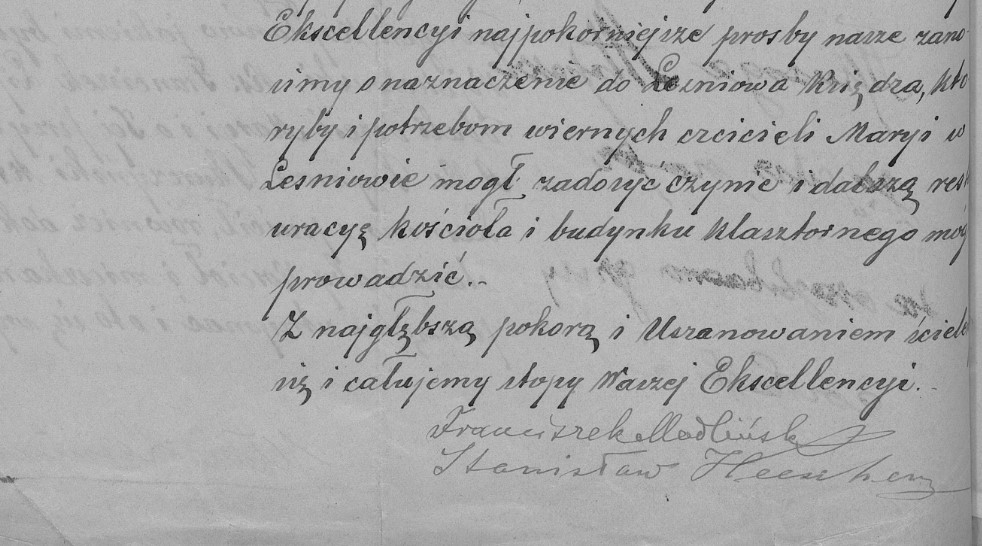 Ekscellencyi najpokorniejsze prosby nasze zano-
simy o naznaczenie do Lesniowa Księdza, któ
ryby i potrzebom wiernych czcicieli Maryi w
Leśniowie mógł zadosyc czynic i dalszą rest
uracyę kościoła i budynku klasztornego móg
prowadzić.-
Z najgłębszą pokorą i Uszanowaniem ściele
się i całujemy stopy Waszej Ekscellencyi.-
Franciszek Modliński
Stanisław